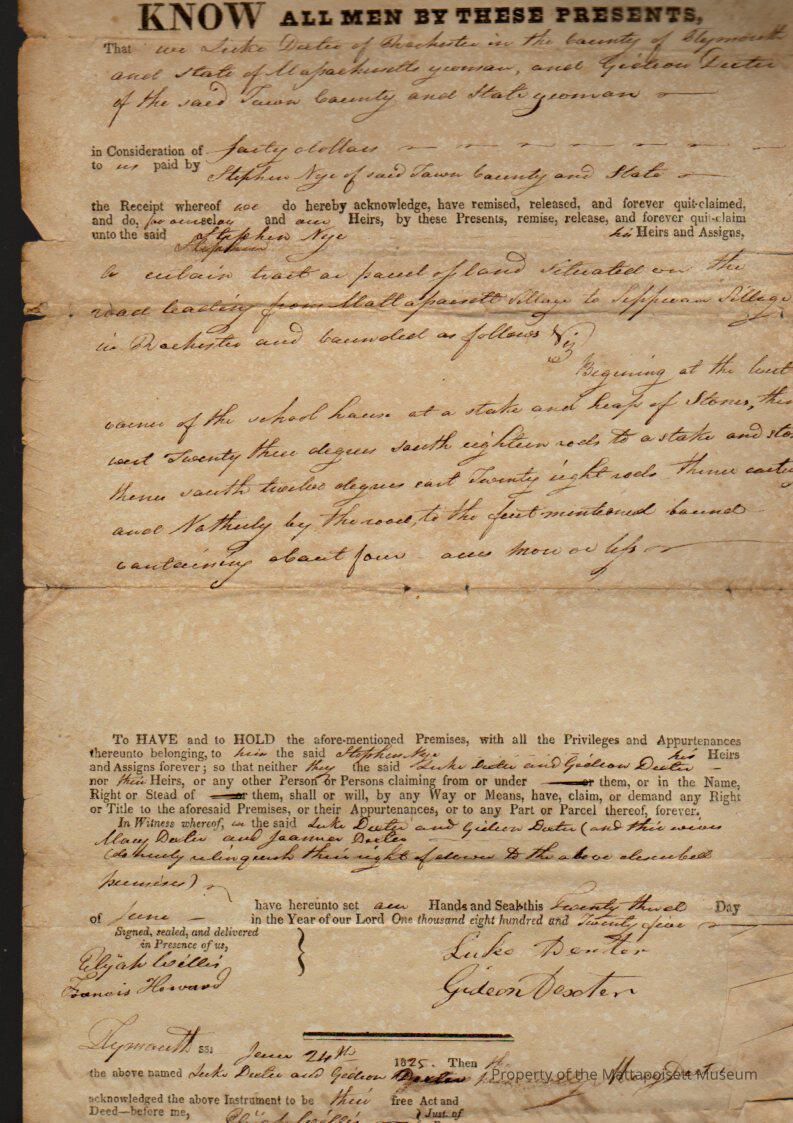 KNOW ALL MEN BY THESE PRESENTS,
That we Luke Dexter of Rochester in the County of Plymouth
and State of Massachusetts yeoman, and Gideon Dexter
of the said Town County and State yeoman
in Consideration of forty dollars
to us paid by Stephen Nye of said Town County and State
the Receipt whereof we do hereby acknowledge, have remised, released, and forever quit-claimed,
and do, for ourselves and our Heirs, by these Presents, remise, release, and forever quit-claim
unto the said Stephen Nye his Heirs and Assigns,
Stephen
a certain tract or parcel of land situated on the
road leading from Mattapoisett Village to Sippican Village
in Rochester and bounded as follows Viz
Begining at the west
corner of the school house at a stake and heap of Stones, then
west Twenty three degrees south eighteen rods to a stake and sto
thence south twelve degrees east Twenty eight rods thence easte
and Notherly by the road, to the first mentioned bound
containing about four acres more or less
To HAVE and to HOLD the afore-mentioned Premises, with all the Privileges and Appurtenances
thereunto belonging, to him the said Stephen Nye his Heirs
and Assigns forever; so that neither they the said Luke Dexter and Gideon Dexter
nor their Heirs, or any other Person or Persons claiming from or under or them, or in the Name,
Right or Stead of or them, shall or will, by any Way or Means, have, claim, or demand any Right
or Title to the aforesaid Premises, or their Appurtenances, or to any Part or Parcel thereof, forever.
In Witness whereof, we the said Luke Dexter and Gideon Dexter (and their wives
Mary Dexter and Joanna Dexter
relinquish their right of dower to the above described
premises)
have hereunto set our Hands and Seals this Twenty third Day
of June in the Year of our Lord One thousand eight hundred and Twenty five
Signed, sealed, and delivered
in Presence of us,
Elijah Willis
Francis Howard
Luke Dexter
Gideon Dexter
Plymouth ss: June 24th 1825. Then
the above named Luke Dexter and Gideon Dexter
acknowledged the above Instrument to be their free Act and
Deed—before me, Elijah Willis Just. of
Property of the Mattapoisett Museum